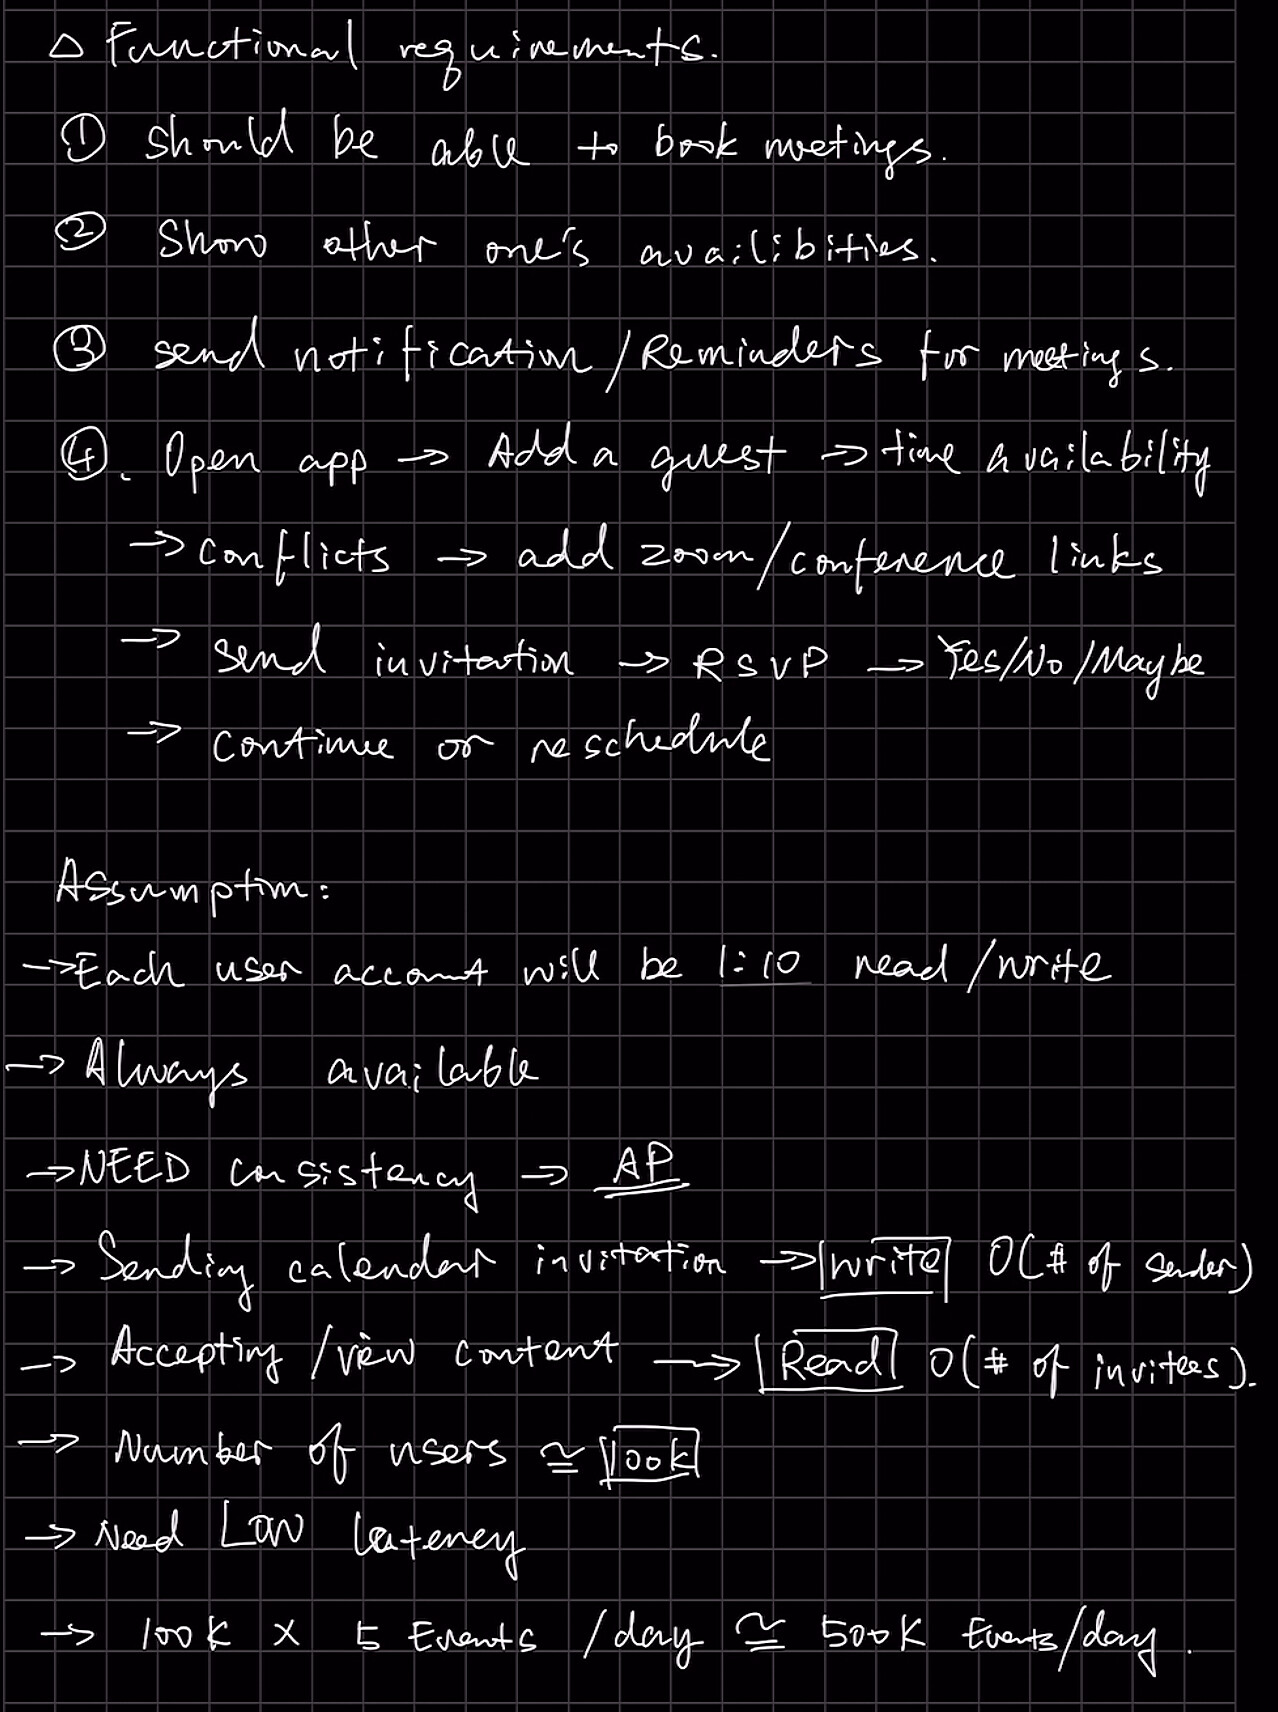 △ Functional requirements.
① should be able to book meetings.
② Show other one's availibities.
③ send notification/Reminders for meetings.
④. Open app → Add a guest → time availability
→ conflicts → add zoom/conference links
→ send invitation → RSVP → Yes/No/Maybe
→ continue or reschedule
Assumption:
→ Each user account will be 1:10 read/write
→ Always available
→ NEED consistency → AP
→ Sending calendar invitation → write O(# of sender)
→ Accepting/view content → Read O(# of invitees).
→ Number of users ≅ 100k
→ Need Low latency
→ 100k x 5 Events /day ≅ 500K Events/day.